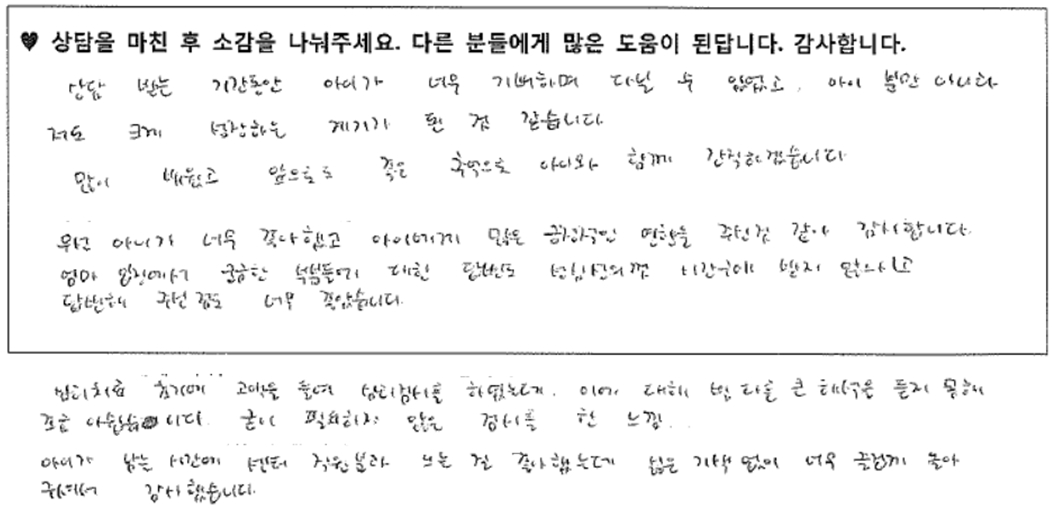 ♥ 상담을 마친 후 소감을 나눠주세요. 다른 분들에게 많은 도움이 된답니다. 감사합니다.
상담 받는 기간동안 아이가 너무 기뻐하며 다닐 수 있었고, 아이 뿐만 아니라
저도 크게 성장하는 계기가 된 것 같습니다.
많이 배웠고 앞으로도 좋은 추억으로 아이와 함께 간직하겠습니다.
우선 아이가 너무 좋아했고 아이에게 많은 긍정적인 변화를 주신것 같아 감사합니다.
엄마 입장에서 궁금한 부분들에 대한 답변도 선생님의 시간에 받지 않으시고
답변해 주신 점도 너무 좋았습니다.
심리치료 초기에 고액을 들여 심리검사를 하였는데, 이에 대해 별 다른 큰 해석은 듣지 못해
조금 아쉽습니다. 굳이 필요하지 않은 검사를 한 느낌..
아이가 남는 시간에 센터 직원분과 노는 걸 좋아했는데 싫은 기색 없이 너무 즐겁게 놀아
주셔서 감사했습니다.